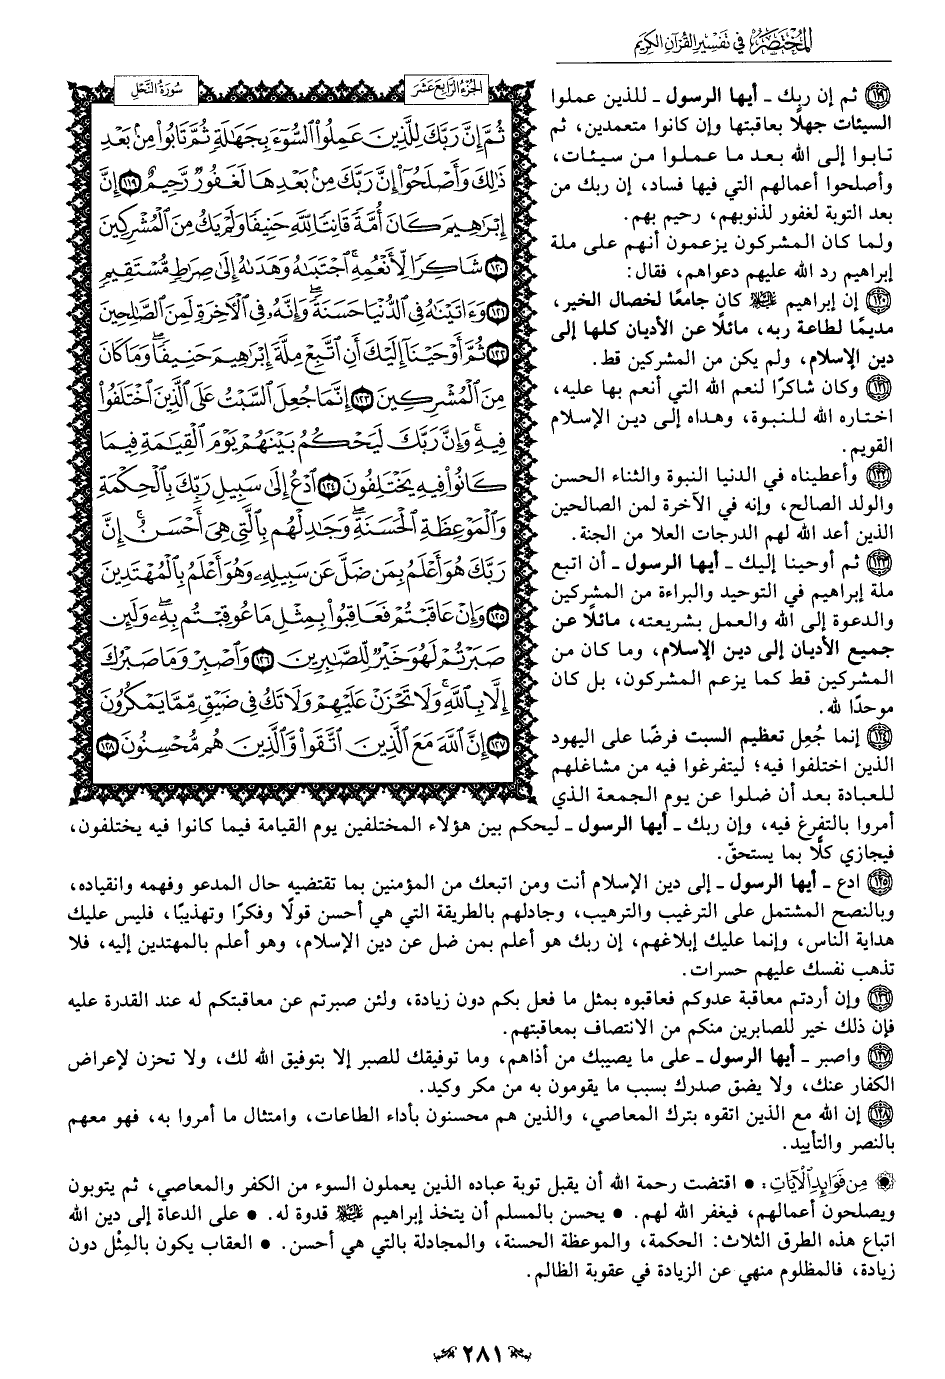 المختصر في تفسير القرآن الكريم
الجزء الرابع عشر
سورة النحل
ثُمَّ إِنَّ رَبَّكَ لِلَّذِينَ عَمِلُوا۟ ٱلسُّوٓءَ بِجَهَٰلَةٍ ثُمَّ تَابُوا۟ مِنۢ بَعْدِ
ذَٰلِكَ وَأَصْلَحُوٓا۟ إِنَّ رَبَّكَ مِنۢ بَعْدِهَا لَغَفُورٌ رَّحِيمٌ ١١٩ إِنَّ
إِبْرَٰهِيمَ كَانَ أُمَّةً قَانِتًا لِّلَّهِ حَنِيفًا وَلَمْ يَكُ مِنَ ٱلْمُشْرِكِينَ
١٢٠ شَاكِرًا لِّأَنْعُمِهِ ۚ ٱجْتَبَىٰهُ وَهَدَىٰهُ إِلَىٰ صِرَٰطٍ مُّسْتَقِيمٍ
١٢١ وَءَاتَيْنَٰهُ فِى ٱلدُّنْيَا حَسَنَةً ۖ وَإِنَّهُۥ فِى ٱلْءَاخِرَةِ لَمِنَ ٱلصَّٰلِحِينَ
١٢٢ ثُمَّ أَوْحَيْنَآ إِلَيْكَ أَنِ ٱتَّبِعْ مِلَّةَ إِبْرَٰهِيمَ حَنِيفًا ۖ وَمَا كَانَ
مِنَ ٱلْمُشْرِكِينَ ١٢٣ إِنَّمَا جُعِلَ ٱلسَّبْتُ عَلَى ٱلَّذِينَ ٱخْتَلَفُوا۟
فِيهِ ۚ وَإِنَّ رَبَّكَ لَيَحْكُمُ بَيْنَهُمْ يَوْمَ ٱلْقِيَٰمَةِ فِيمَا
كَانُوا۟ فِيهِ يَخْتَلِفُونَ ١٢٤ ٱدْعُ إِلَىٰ سَبِيلِ رَبِّكَ بِٱلْحِكْمَةِ
وَٱلْمَوْعِظَةِ ٱلْحَسَنَةِ ۖ وَجَٰدِلْهُم بِٱلَّتِى هِىَ أَحْسَنُ ۚ إِنَّ
رَبَّكَ هُوَ أَعْلَمُ بِمَن ضَلَّ عَن سَبِيلِهِۦ وَهُوَ أَعْلَمُ بِٱلْمُهْتَدِينَ
١٢٥ وَإِنْ عَاقَبْتُمْ فَعَاقِبُوا۟ بِمِثْلِ مَا عُوقِبْتُم بِهِۦ ۖ وَلَئِن
صَبَرْتُمْ لَهُوَ خَيْرٌ لِّلصَّٰبِرِينَ ١٢٦ وَٱصْبِرْ وَمَا صَبْرُكَ
إِلَّا بِٱللَّهِ ۚ وَلَا تَحْزَنْ عَلَيْهِمْ وَلَا تَكُ فِى ضَيْقٍ مِّمَّا يَمْكُرُونَ
١٢٧ إِنَّ ٱللَّهَ مَعَ ٱلَّذِينَ ٱتَّقَوا۟ وَّٱلَّذِينَ هُم مُّحْسِنُونَ ١٢٨
١١٩ ثم إن ربك ـ أيها الرسول ـ للذين عملوا
السيئات جهلًا بعاقبتها وإن كانوا متعمدين، ثم
تابوا إلى الله بعد ما عملوا من سيئات،
وأصلحوا أعمالهم التي فيها فساد، إن ربك من
بعد التوبة لغفور لذنوبهم، رحيم بهم.
ولما كان المشركون يزعمون أنهم على ملة
إبراهيم رد الله عليهم دعواهم، فقال:
١٢٠ إن إبراهيم ﵇ كان جامعًا لخصال الخير،
مديمًا لطاعة ربه، مائلًا عن الأديان كلها إلى
دين الإسلام، ولم يكن من المشركين قط.
١٢١ وكان شاكرًا لنعم الله التي أنعم بها عليه،
اختاره الله للنبوة، وهداه إلى دين الإسلام
القويم.
١٢٢ وأعطيناه في الدنيا النبوة والثناء الحسن
والولد الصالح، وإنه في الآخرة لمن الصالحين
الذين أعد الله لهم الدرجات العلا من الجنة.
١٢٣ ثم أوحينا إليك ـ أيها الرسول ـ أن اتبع
ملة إبراهيم في التوحيد والبراءة من المشركين
والدعوة إلى الله والعمل بشريعته، مائلًا عن
جميع الأديان إلى دين الإسلام، وما كان من
المشركين قط كما يزعم المشركون، بل كان
موحدًا لله.
١٢٤ إنما جُعِل تعظيم السبت فرضًا على اليهود
الذين اختلفوا فيه؛ ليتفرغوا فيه من مشاغلهم
للعبادة بعد أن ضلوا عن يوم الجمعة الذي
أمروا بالتفرغ فيه، وإن ربك ـ أيها الرسول ـ ليحكم بين هؤلاء المختلفين يوم القيامة فيما كانوا فيه يختلفون،
فيجازي كلًّا بما يستحقّ.
١٢٥ ادع ـ أيها الرسول ـ إلى دين الإسلام أنت ومن اتبعك من المؤمنين بما تقتضيه حال المدعو وفهمه وانقياده،
وبالنصح المشتمل على الترغيب والترهيب، وجادلهم بالطريقة التي هي أحسن قولًا وفكرًا وتهذيبًا، فليس عليك
هداية الناس، وإنما عليك إبلاغهم، إن ربك هو أعلم بمن ضل عن دين الإسلام، وهو أعلم بالمهتدين إليه، فلا
تذهب نفسك عليهم حسرات.
١٢٦ وإن أردتم معاقبة عدوكم فعاقبوه بمثل ما فعل بكم دون زيادة، ولئن صبرتم عن معاقبتكم له عند القدرة عليه
فإن ذلك خير للصابرين منكم من الانتصاف بمعاقبتهم.
١٢٧ واصبر ـ أيها الرسول ـ على ما يصيبك من أذاهم، وما توفيقك للصبر إلا بتوفيق الله لك، ولا تحزن لإعراض
الكفار عنك، ولا يضق صدرك بسبب ما يقومون به من مكر وكيد.
١٢٨ إن الله مع الذين اتقوه بترك المعاصي، والذين هم محسنون بأداء الطاعات، وامتثال ما أمروا به، فهو معهم
بالنصر والتأييد.
من فوائد الآيات: • اقتضت رحمة الله أن يقبل توبة عباده الذين يعملون السوء من الكفر والمعاصي، ثم يتوبون
ويصلحون أعمالهم، فيغفر الله لهم. • يحسن بالمسلم أن يتخذ إبراهيم ﵇ قدوة له. • على الدعاة إلى دين الله
اتباع هذه الطرق الثلاث: الحكمة، والموعظة الحسنة، والمجادلة بالتي هي أحسن. • العقاب يكون بالمِثْل دون
زيادة، فالمظلوم منهي عن الزيادة في عقوبة الظالم.
٢٨١